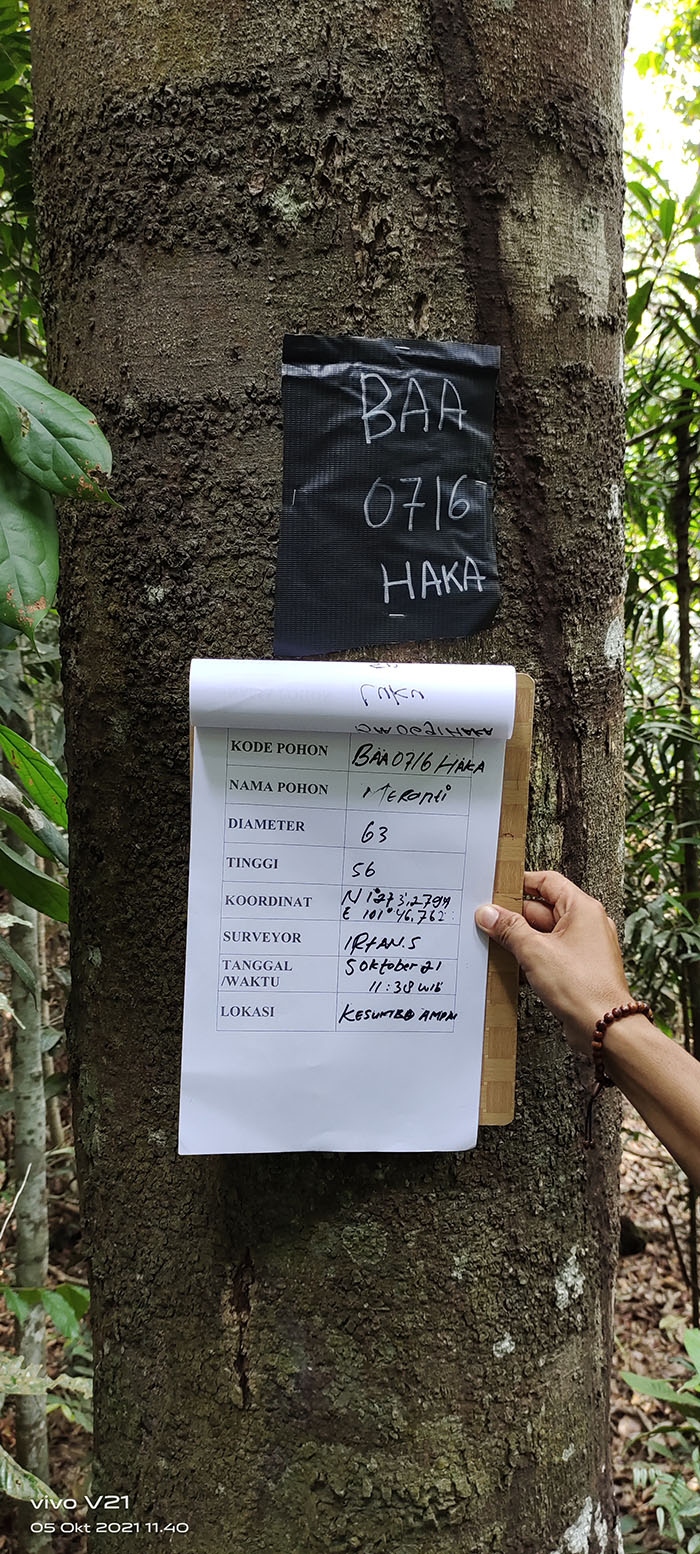 BAA
0716
HAKA
KODE POHON BAA0716 HAKA
NAMA POHON Meranti
DIAMETER 63
TINGGI 56
KOORDINAT
E 101° 46,762
SURVEYOR IRFAN.S
TANGGAL 5 Oktober 21
/WAKTU 11:38 WIB
LOKASI KESUMBO AMPAI
vivo V21
05 Okt 2021 11.40